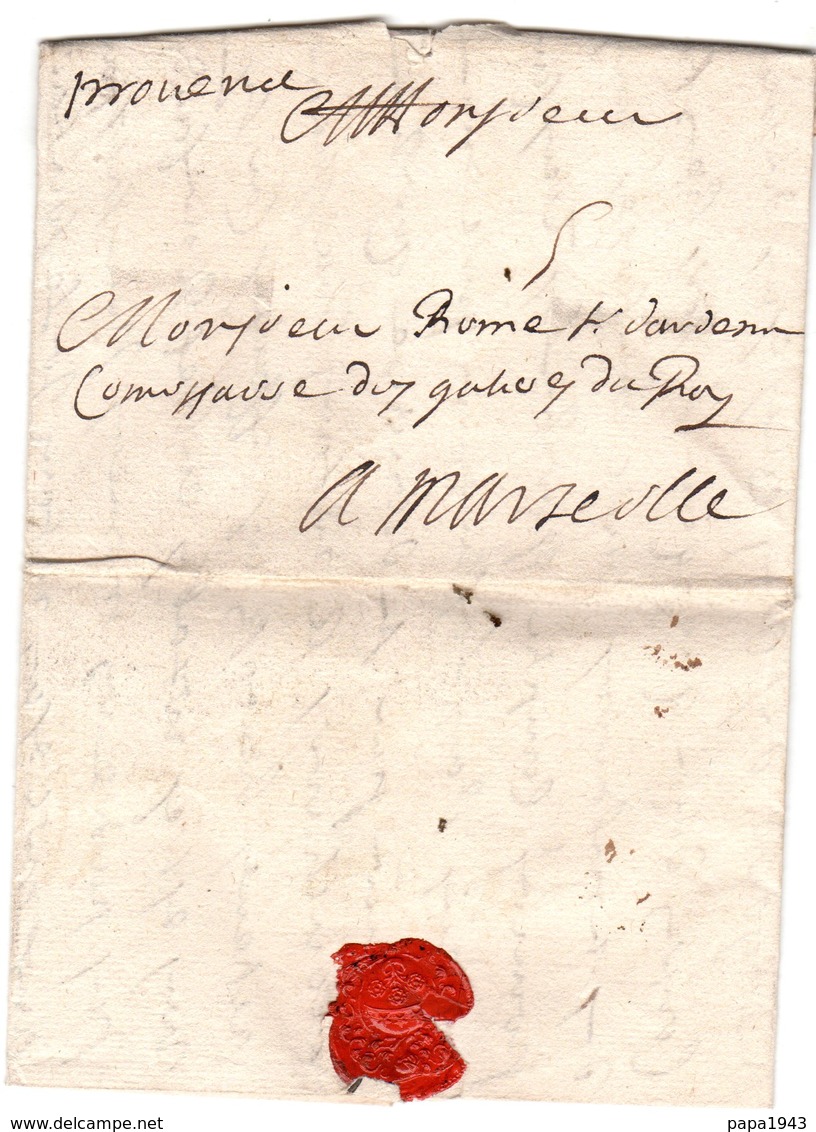 provence
Monsieur
5
Monsieur Rome Sr dardenne
Comissaire des galeres du Roy
a Marseille
www.delcampe.net
papa1943